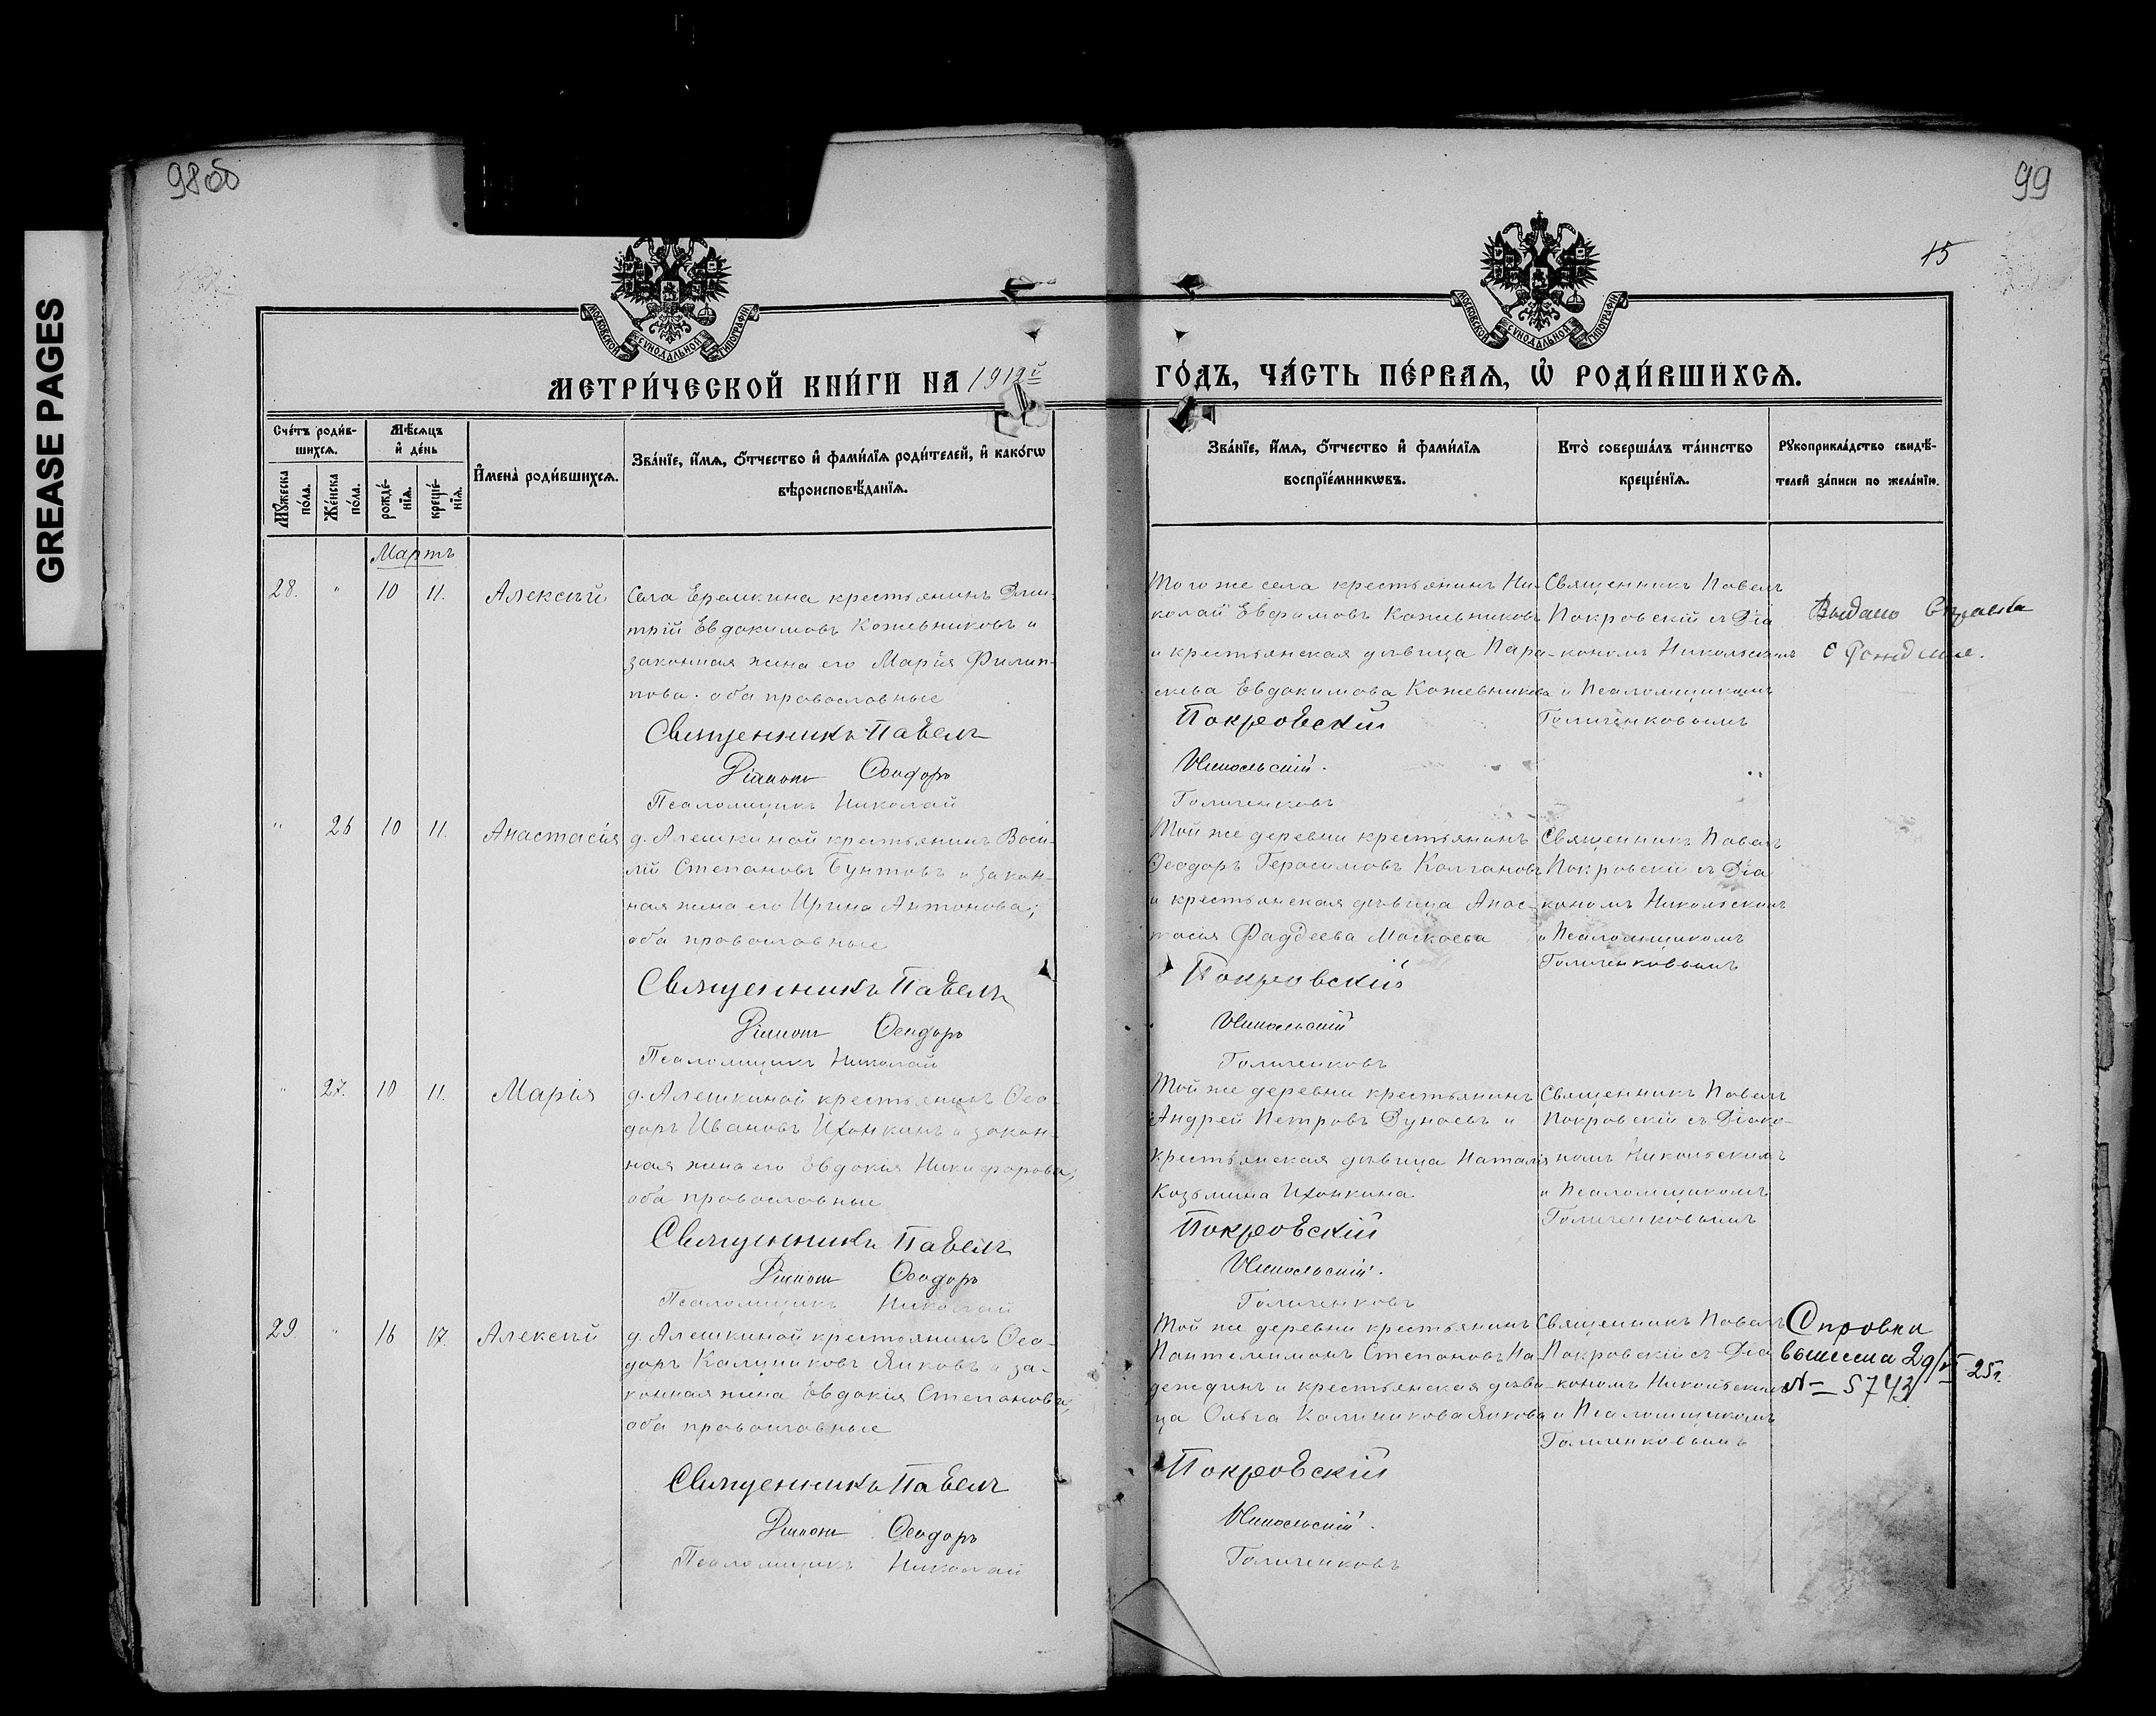 GREASE PAGES
98об
99
15
МОСКОВСКОЙ СѴНОДАЛЬНОЙ ТИПОГРАФІИ
МОСКОВСКОЙ СѴНОДАЛЬНОЙ ТИПОГРАФІИ
МЕТРИ́ЧЕСКОЙ КНИ́ГИ НА 1912й
ГО́ДЪ, ЧА́СТЬ ПЕ́РВАѦ, Ѡ҆ РОДИ́ВШИХСѦ.
Сче́тъ роди́в-
шихсѧ.
Мꙋ́жеска по́ла.
Же́нска по́ла.
Мѣ́сѧцъ
и҆ де́нь
рожде́-
нїѧ.
креще́-
нїѧ.
И҆мена̀ роди́вшихсѧ.
Зва́нїе, и҆́мѧ, ѻ҆́тчество и҆ фами́лїѧ роди́телей, и҆ како́гѡ
вѣроисповѣ́данїѧ.
Зва́нїе, и҆́мѧ, ѻ҆́тчество и҆ фами́лїѧ
воспрїе́мникѡвъ.
Кто̀ соверша́лъ та́инство
креще́нїѧ.
Рꙋкоприкла́дство свидѣ́-
телей за́писи по жела́нїю.
Мартъ
28. " 10 11. Алексѣй
Села Еремкина крестьянинъ Дми-
трій Евдокимовъ Кожевниковъ и
законная жена его Марія Филип-
пова. оба православные
Священникъ Павелъ
Діаконъ Ѳеодоръ
Псаломщикъ Николай
Того же села крестьянинъ Ни-
колай Евфимовъ Кожевниковъ
и крестьянская дѣвица Пара-
скева Евдокимова Кожевникова
Покровскій
Никольскій.
Голиченковъ
Священникъ Павелъ
Покровскій съ Діа
кономъ Никольскимъ
и Псаломщикомъ
Голиченковымъ
Выдано Справка
о Рожденіе.
" 26 10 11. Анастасія
д. Алешкиной крестьянинъ Васи-
лій Степановъ Бунтовъ и закон-
ная жена его Ирина Антонова;
оба православные
Священникъ Павелъ
Діаконъ Ѳеодоръ
Псаломщикъ Николай
Той же деревни крестьянинъ
Ѳеодоръ Герасимовъ Колгановъ
и крестьянская дѣвица Анас-
тасія Фаддеева
Покровскій
Никольскій
Голиченковъ
Священникъ Павелъ
Покровскій съ Діа
кономъ Никольскимъ
и Псаломщикомъ
Голиченковымъ
" 27. 10 11. Марія
д. Алешкиной крестьянинъ Ѳео-
доръ Ивановъ Ихонкинъ и закон-
ная жена его Евдокія Никифорова;
оба православные
Священникъ Павелъ
Діаконъ Ѳеодоръ
Псаломщикъ Николай
Той же деревни крестьянинъ
Андрей Петровъ Дунаевъ и
крестьянская дѣвица Наталія
Козьмина Ихонкина
Покровскій
Никольскій.
Голиченковъ
Священникъ Павелъ
Покровскій съ Діако-
номъ Никольскимъ
и Псаломщикомъ
Голиченковымъ
29. " 16 17. Алексѣй
д. Алешкиной крестьянинъ Ѳео-
доръ Калиниковъ Яиковъ и за-
конная жена Евдокія Степановa;
оба православные
Священникъ Павелъ
Діаконъ Ѳеодоръ
Псаломщикъ Николай
Той же деревни крестьянинъ
Пантелимонъ Степановъ На-
деждинъ и крестьянская дѣви-
ца Ольга Калиникова Яикова
Покровскій
Никольскій.
Голиченковъ
Священникъ Павелъ
Покровскій съ Діа
кономъ Никольскимъ
и Псаломщикомъ
Голиченковымъ
Справка
25г.
№ 5743